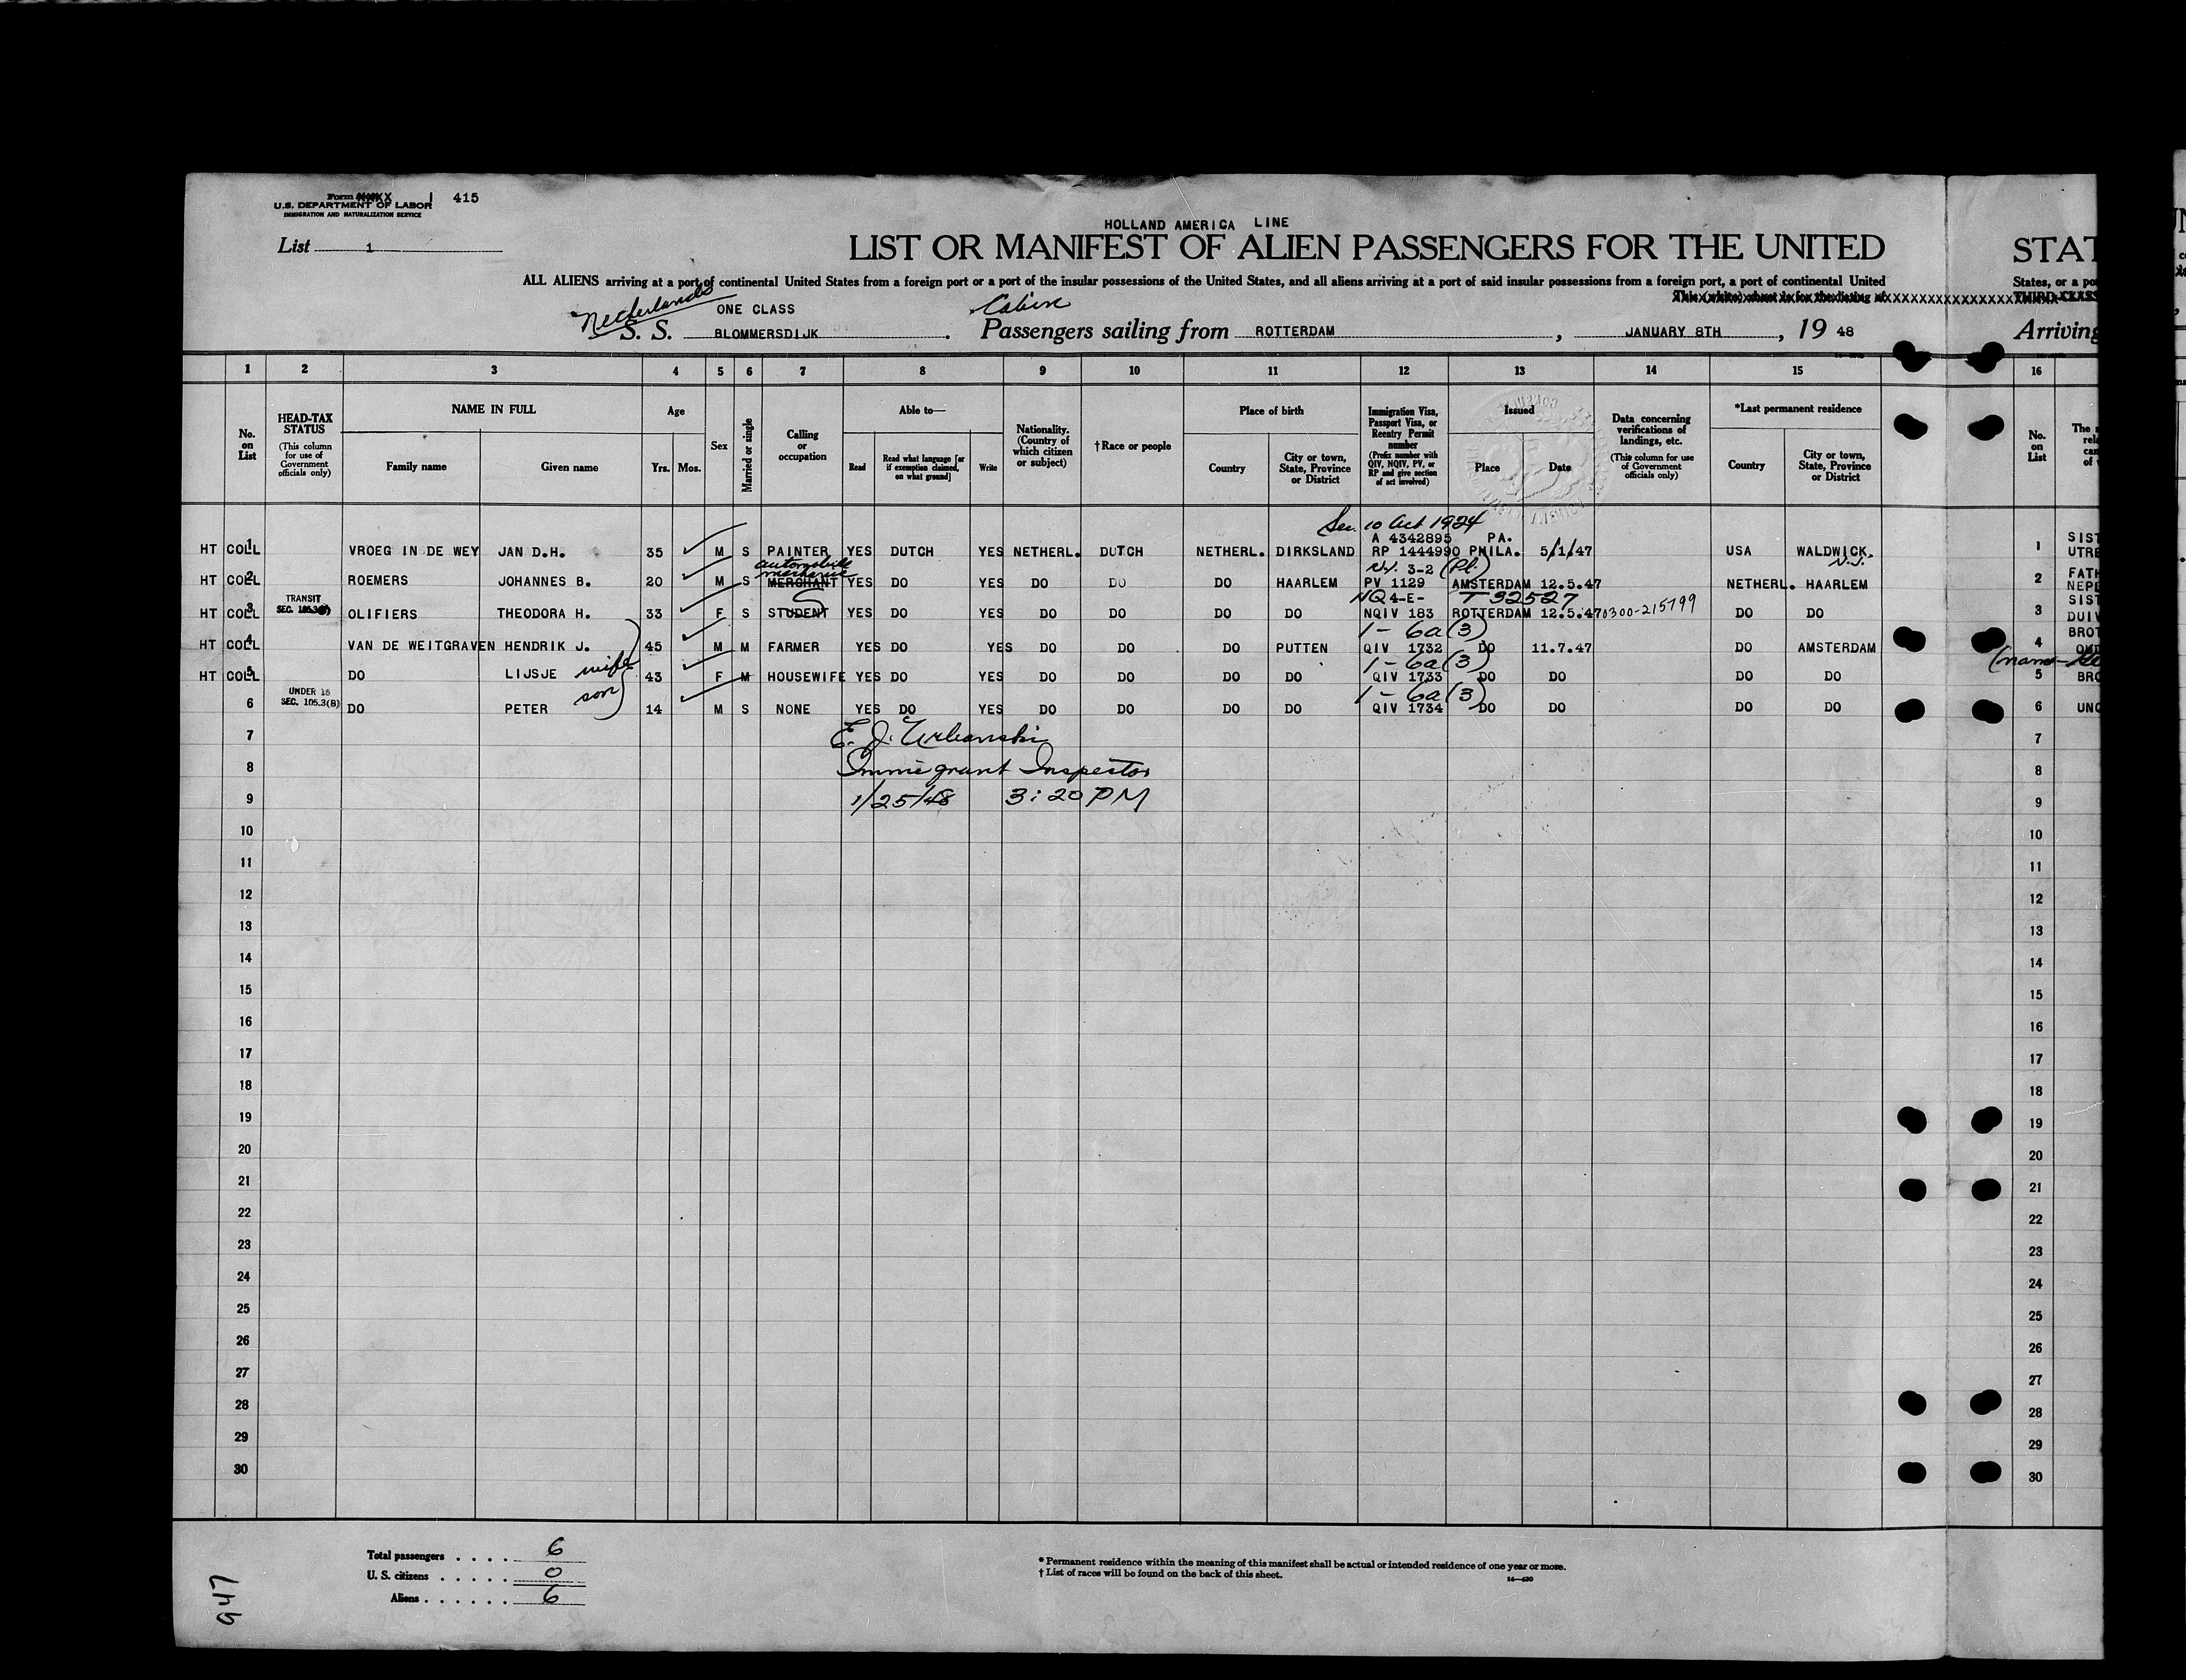 Form XXXXX I 415
U.S. DEPARTMENT OF LABOR
IMMIGRATION AND NATURALIZATION SERVICE
List 1
HOLLAND AMERICA LINE
LIST OR MANIFEST OF ALIEN PASSENGERS FOR THE UNITED
STAT
ALL ALIENS arriving at a port of continental United States from a foreign port or a port of the insular possessions of the United States, and all aliens arriving at a port of said insular possessions from a foreign port, a port of continental United
States, or a po
This (white) sheet is for the listing of
THIRD-CLASS
Netherlands ONE CLASS Cabin
S. S. BLOMMERSDIJK. Passengers sailing from ROTTERDAM, JANUARY 8TH, 19 48
Arriving
1 2 3 4 5 6 7 8 9 10 11 12 13 14 15 16
No. on List
HEAD-TAX STATUS (This column for use of Government officials only)
NAME IN FULL Family name Given name
Age Yrs. Mos.
Sex
Married or single
Calling or occupation
Able to— Read Read what language [or if exemption claimed, on what ground] Write
Nationality. (Country of which citizen or subject)
†Race or people
Place of birth Country City or town, State, Province or District
Immigration Visa, Passport Visa, or Reentry Permit number (Prefix number with QIV, NQIV, PV, or RP and give section of act involved)
Issued Place Date
Data concerning verifications of landings, etc. (This column for use of Government officials only)
*Last permanent residence Country City or town, State, Province or District
No. on List
Sec. 10 Act 1924
A 4342895 PA.
HT COLL 1 VROEG IN DE WEY JAN D.H. 35 M S PAINTER YES DUTCH YES NETHERL. DUTCH NETHERL. DIRKSLAND RP 1444990 PHILA. 5/1/47 USA WALDWICK. N.J. 1 SIST UTRE
automobile mechanic
3-2 (Pl.)
HT COLL 2 ROEMERS JOHANNES B. 20 M S MERCHANT YES DO YES DO DO DO HAARLEM PV 1129 AMSTERDAM 12.5.47 NETHERL. HAARLEM 2 FATH NEPE
TRANSIT SEC. 105.3(f)
NQ 4-E- T 92527
HT COLL 3 OLIFIERS THEODORA H. 33 F S STUDENT YES DO YES DO DO DO DO NQIV 183 ROTTERDAM 12.5.47 0300-215799 DO DO 3 SIST DUIV
1- 6a(3)
HT COLL 4 VAN DE WEITGRAVEN HENDRIK J. 45 M M FARMER YES DO YES DO DO DO PUTTEN QIV 1732 DO 11.7.47 DO AMSTERDAM 4 BROT
1- 6a(3)
HT COLL 5 DO LIJSJE wife 43 F M HOUSEWIFE YES DO YES DO DO DO DO QIV 1733 DO DO DO DO 5 BRO
UNDER 16 SEC. 105.3(B)
1- 6a(3)
6 DO PETER son 14 M S NONE YES DO YES DO DO DO DO QIV 1734 DO DO DO DO 6 UNC
7 E. J. Urbanski 7
8 Immigrant Inspector 8
9 1/25/48 3:20 PM 9
10 10
11 11
12 12
13 13
14 14
15 15
16 16
17 17
18 18
19 19
20 20
21 21
22 22
23 23
24 24
25 25
26 26
27 27
28 28
29 29
30 30
Total passengers . . . . 6
U. S. citizens . . . . . 0
Aliens . . . . . . 6
* Permanent residence within the meaning of this manifest shall be actual or intended residence of one year or more.
† List of races will be found on the back of this sheet.
947